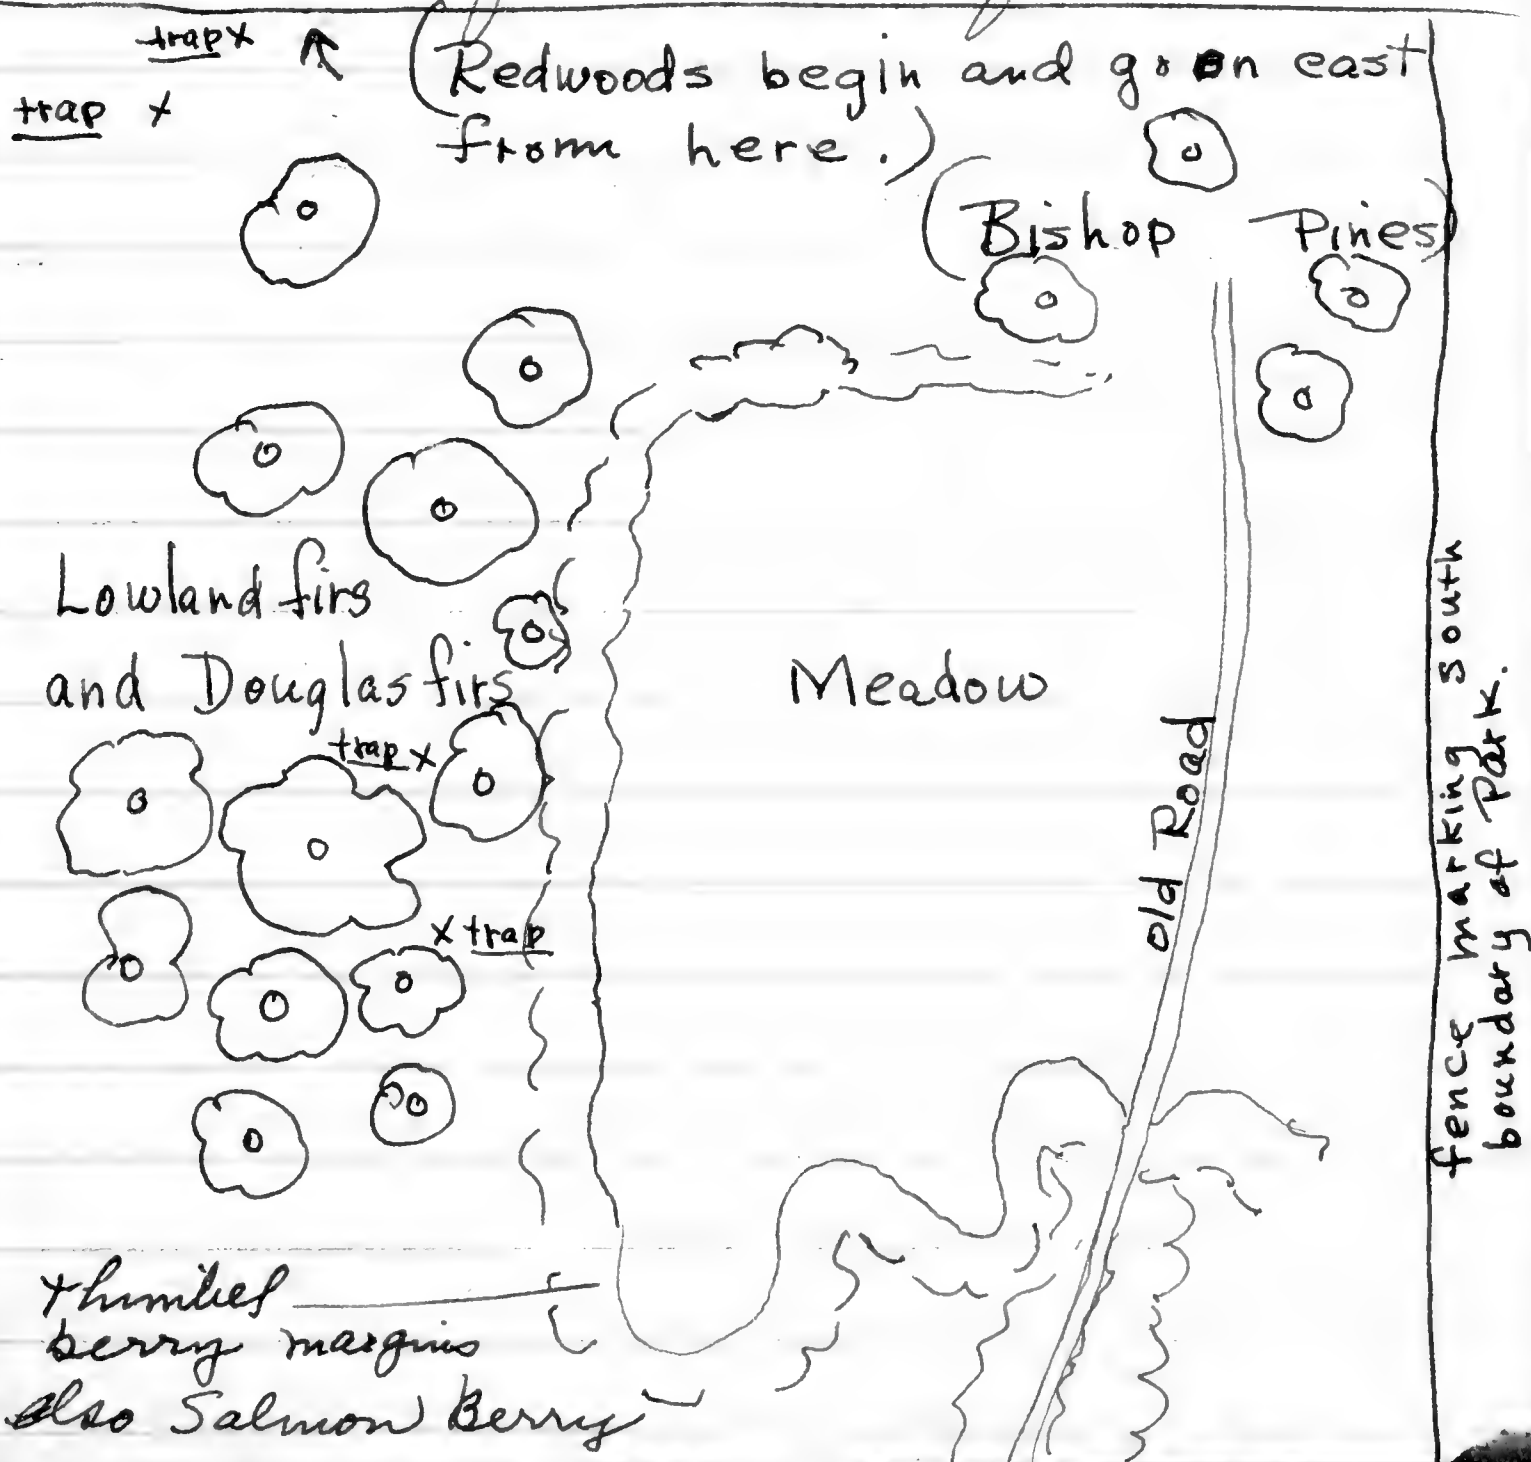 trap x
trap x
(Redwoods begin and go on east
from here.)
(Bishop Pines)
Lowland firs
and Douglas firs
Meadow
trap x
x trap
Old Road
fence marking south
boundary of Park.
thimbel
berry margins
also Salmon Berry